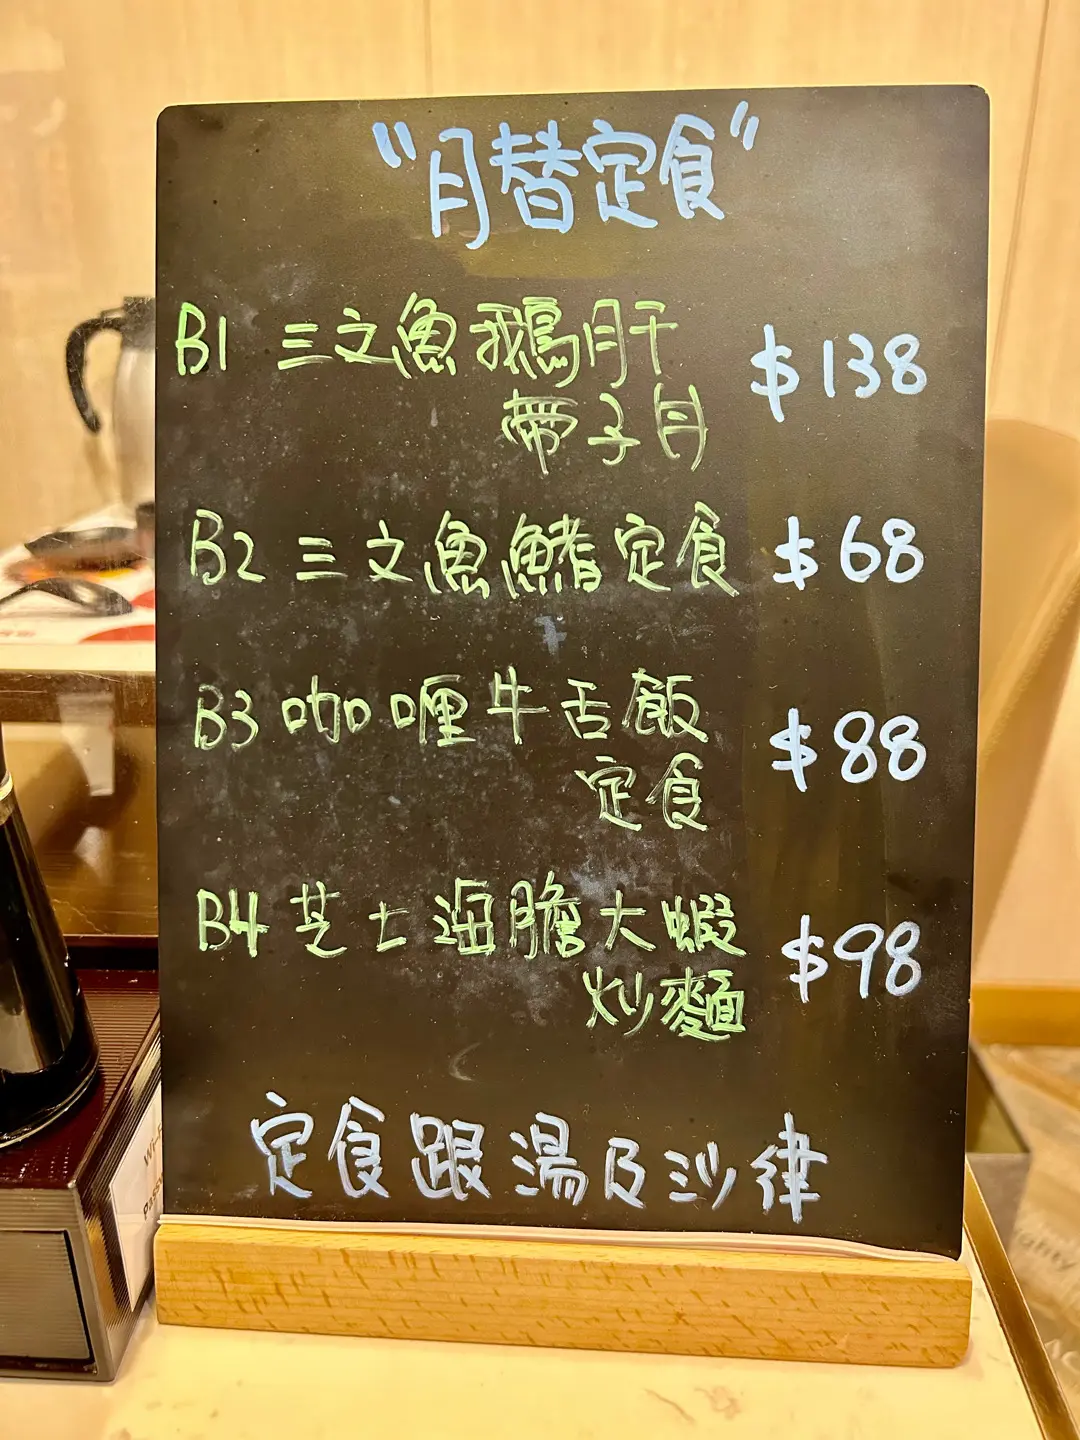 "月替定食"
B1 三文魚鵝肝
帶子丼
$138
B2 三文魚鰭定食 $68
B3 咖喱牛舌飯
定食
$88
B4 芝士海膽大蝦
炒麵
$98
定食跟湯及沙律